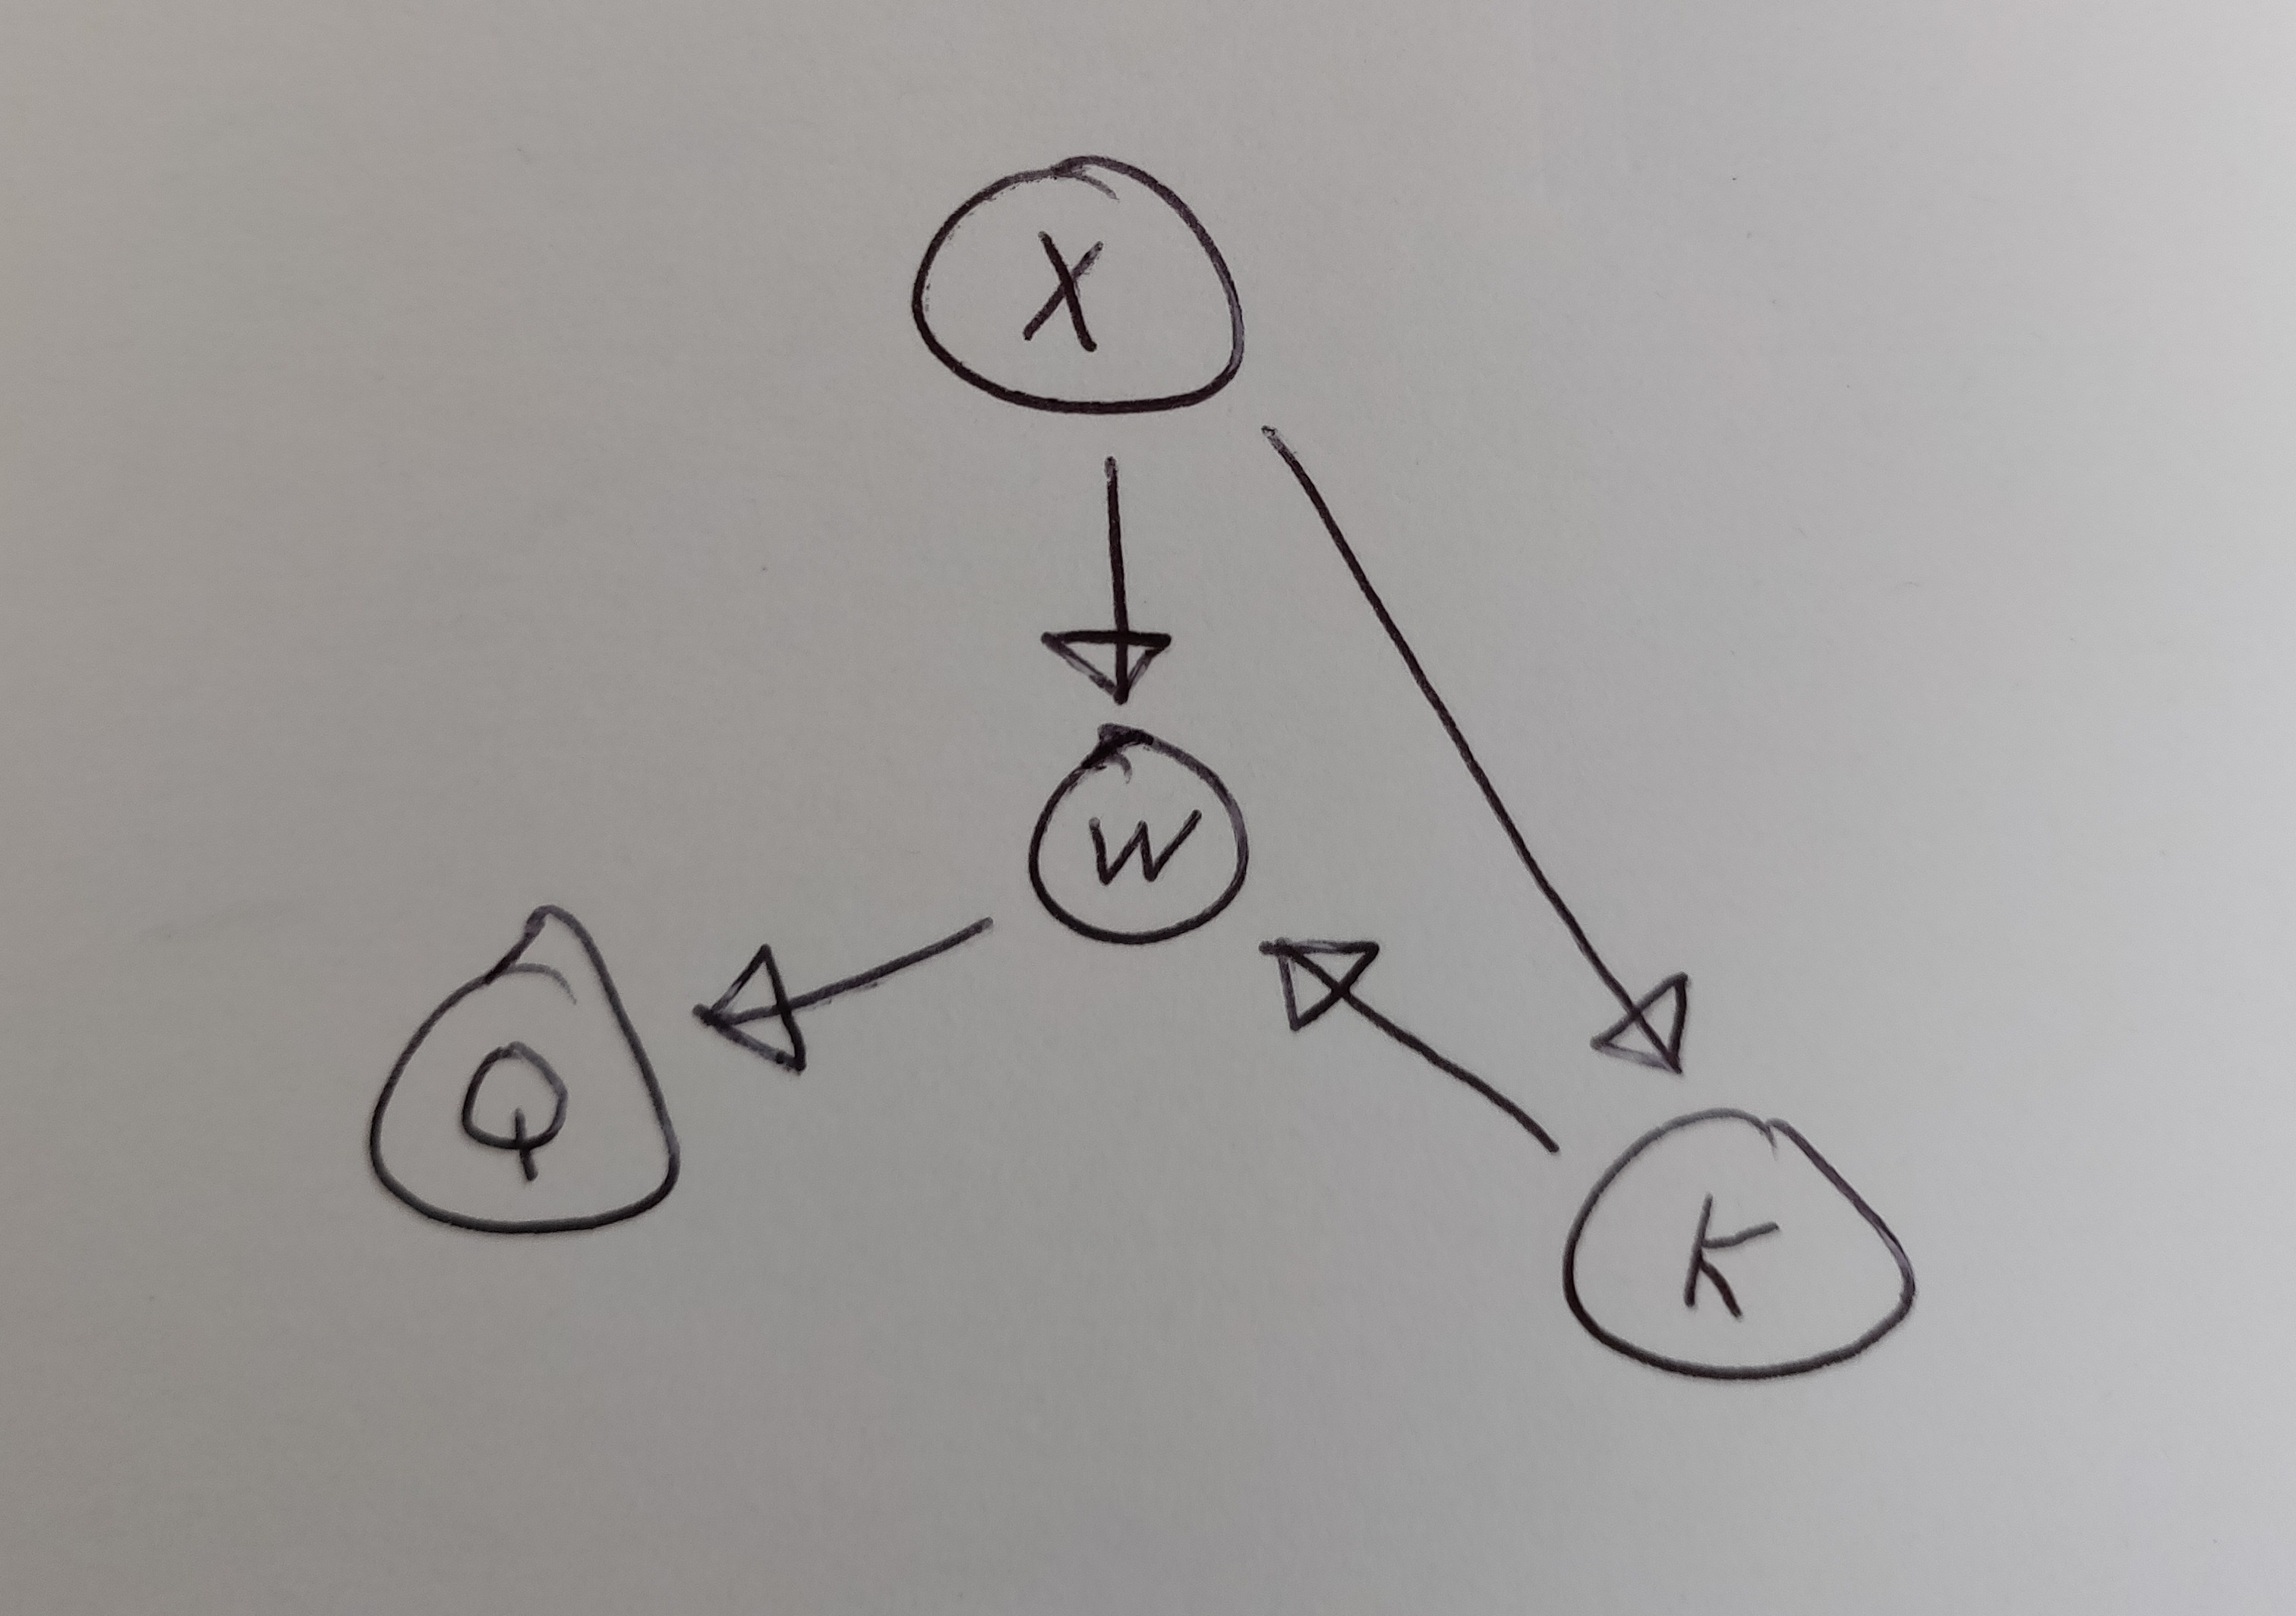 X
W
Q
K